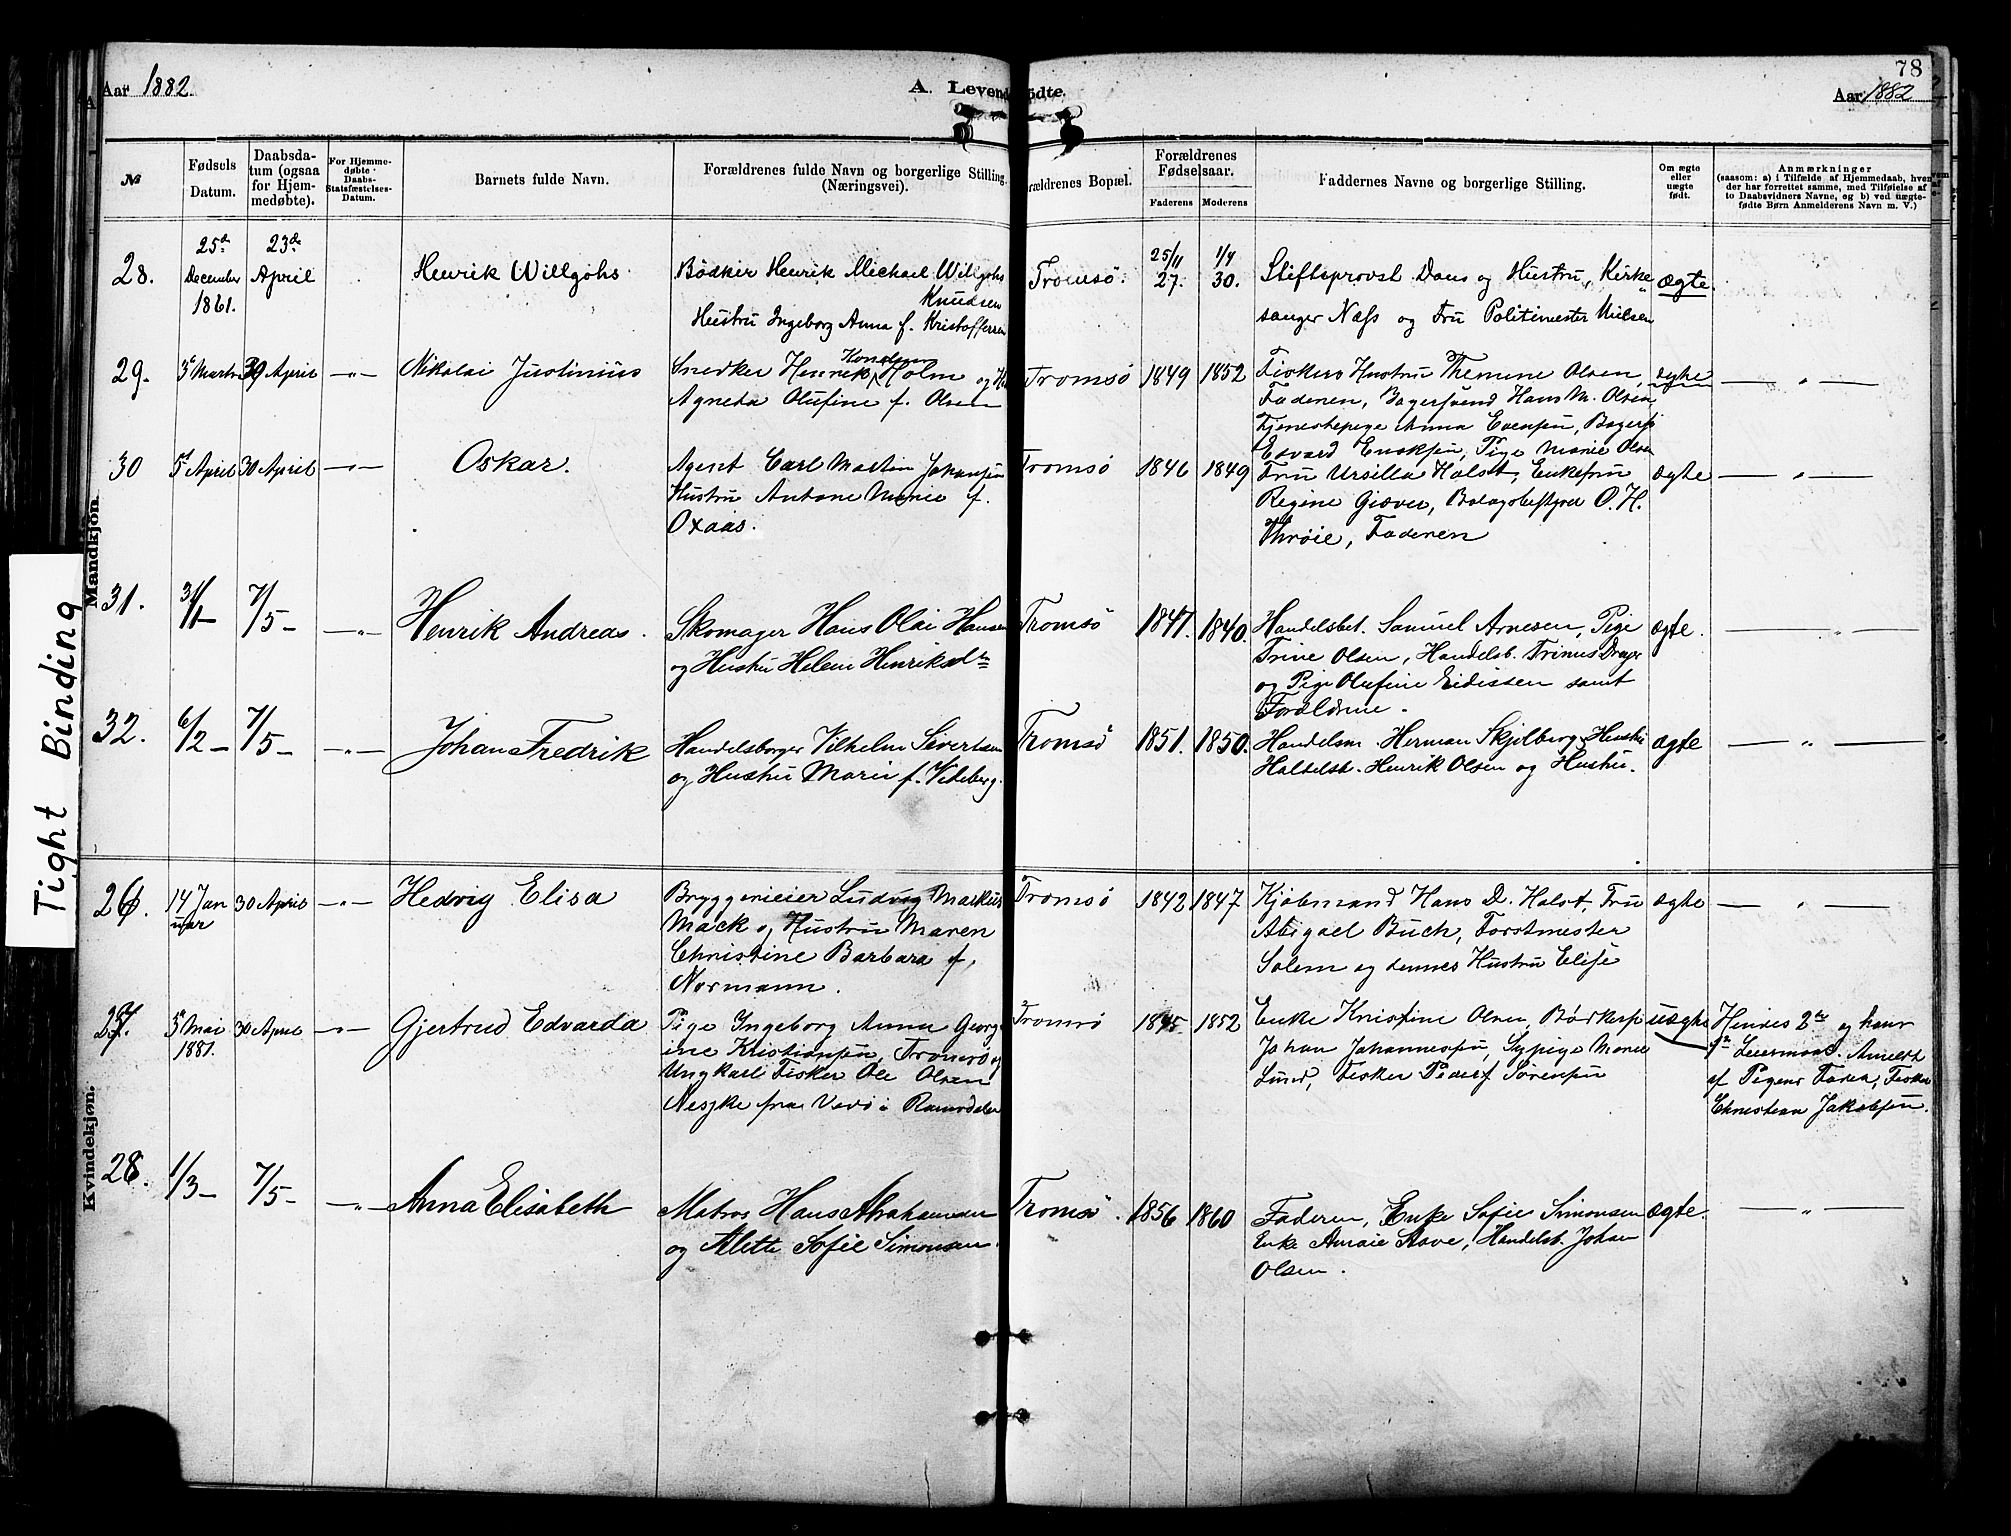 Aar 1882.
A. Levendefødte.
78
Aar 1882
№
Fødsels Datum.
Daabsdatum (ogsaa for Hjemmedøbte).
For Hjemmedøbte Daabs-Statsfæstelses-Datum.
Barnets fulde Navn.
Forældrenes fulde Navn og borgerlige Stilling. (Næringsvei).
Forældrenes Bopæl.
Forældrenes Fødselsaar.
Faderens
Moderens
Faddernes Navne og borgerlige Stilling.
Om ægte eller uægte født.
Anmærkninger
(saasom: a) i Tilfælde af Hjemmedaab, hvem
der har forrettet samme, med Tilføielse af
to Daabsvidners Navne, og b) ved uægte-
fødte Børn Anmelderens Navn m. V.)
Mandkjøn.
Tight Binding
28. 25de December 1861. 23de April
Henrik Willgohs
Bødker Henrik Michael Willgohs
Hustru Ingeborg Anna f. Knudsen Kristoffersen
Tromsø. 25/11 27. 1/4 30.
Stiftsprovst Daus og Hustru, Kirke
sanger Næss og Fru Politimester Nielsen
ægte.
29. 3de Marts 30 April —„—
Nikolai Justinius
Snedker Henrik Holm og
Agneta Olufine f. Olsen
Tromsø 1849 1852
Fiskers Hustru Themine Olsen,
Faderen, Bagersvend Hans M. Olsen,
Tjenestepige Anna Evensen,
Edvard Enoksen, Pige Marie Olsen
ægte — „ —
30 5te April 30 April —„—
Oskar.
Agent Carl Martin Johansen
Hustru Antone Marie f.
Oxaas.
Tromsø 1846 1849
Fru Ursilla Holst, Enkefru
Regine Giæver, O. H.
Thrøie, Faderen
ægte — „ —
31. 31/1 7/5 —„—
Henrik Andreas.
Skomager Hans Olai Hansen
og Hustru Helene Henriksdtr
Tromsø 1847. 1840.
Handelsbet. Samuel Arnesen, Pige
Trine Olsen, Handelsb. Trinus Dreyer
og Pige Olufine Eidissen samt
Forældrene.
ægte. — „ —
32. 6/2 7/5 —„—
Johan Fredrik
Handelsborger Vilhelm Sivertsen
og Hustru Marie f. Viteberg.
Tromsø 1851. 1850.
Handelsm. Herman Skjelberg, Hustru
Henrik Olsen og Hustru.
ægte — „ —
Kvindekjøn.
26. 14 Januar 30 April —„—
Hedvig Elisa
Bryggerieier Ludvig Markus
Mack og Hustru Maren
Christine Barbara f.
Normann.
Tromsø 1842 1847
Kjøbmand Hans D. Holst, Fru
Abigael Buch, Forstmester
Solem og dennes Hustru Elise
ægte — „ —
27. 5te Mai 1881. 30 April —„—
Gjertrud Edvarda
Pige Ingeborg Anna Georg
ine Kristiansen, Tromsø og
Ungkarl Fisker Ole Olsen
Nesjke fra Vevø i Romsdalen
Tromsø 1845 1852
Enke Kristine Olsen, Bødkersv
Johan Johannessen, Sypige Marie
Lund, Fisker Peder Sørensen
uægte
Hendes 2det og hans
1ste Leiermaal. Anmeldt
af Pigens Fader, Fisker
Christian Jakobsen.
28. 1/3 7/5 —„—
Anna Elisabeth
Matros Hans Abrahamsen
og Alette Sofie Simonsen.
Tromsø. 1856 1860
Faderen, Enke Sofie Simonsen
Enke Aave, Handelsb. Johan
Olsen.
ægte. — „ —